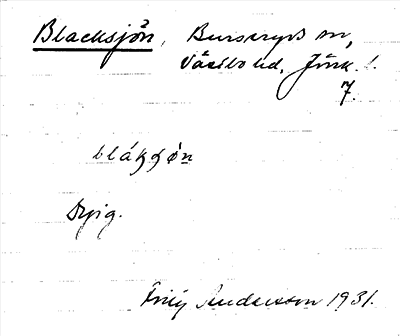 Blacksjön, Burseryds sn,
Västbo hd. Jönk. l.
7.
blákʃø̀n
Dyig.
Frilij Andersson 1931.